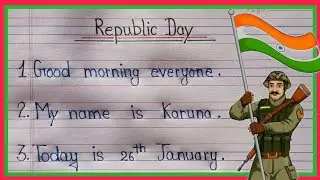 Republic Day
1. Good morning everyone.
2. My name is Karuna.
3. Today is 26th January.